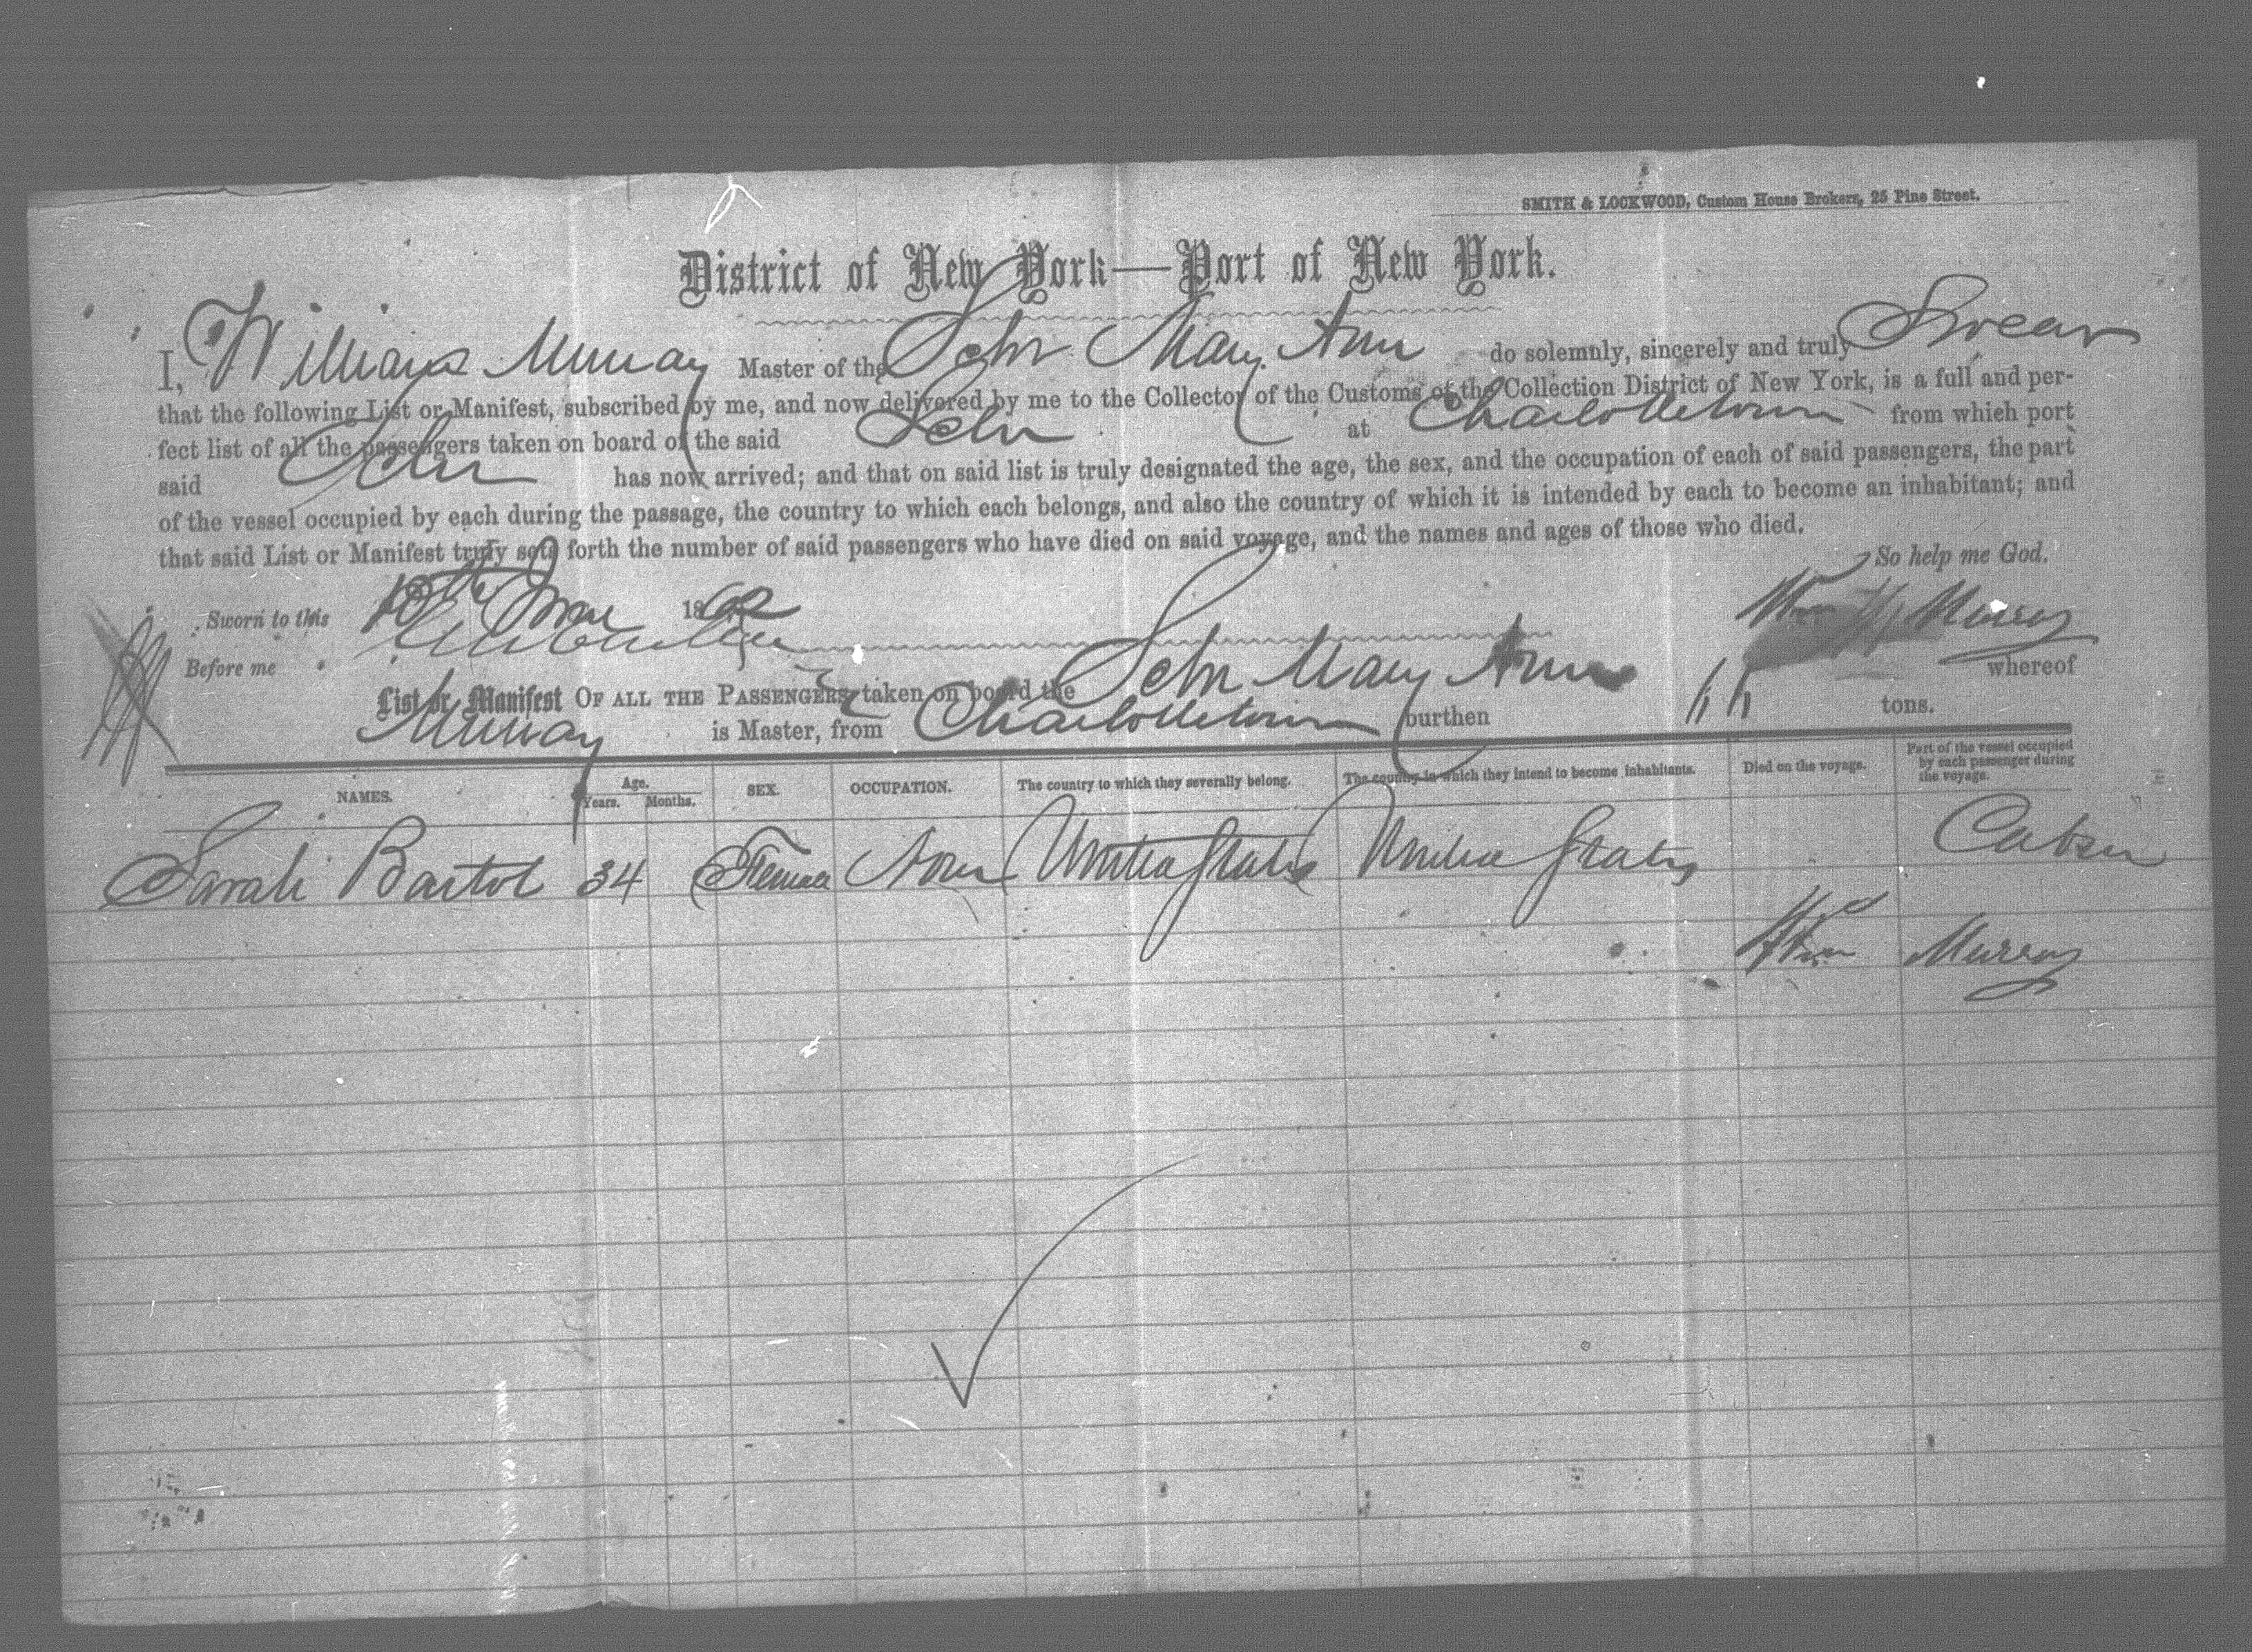 SMITH & LOCKWOOD, Custom House Brokers, 25 Pine Street.
District of New York—Port of New York.
I, William Murray Master of the Schr Mary Ann do solemnly, sincerely and truly Swear
that the following List or Manifest, subscribed by me, and now delivered by me to the Collector of the Customs of the Collection District of New York, is a full and per-
fect list of all the passengers taken on board of the said Schr at Charlottetown from which port
said Schr has now arrived; and that on said list is truly designated the age, the sex, and the occupation of each of said passengers, the part
of the vessel occupied by each during the passage, the country to which each belongs, and also the country of which it is intended by each to become an inhabitant; and
that said List or Manifest truly sets forth the number of said passengers who have died on said voyage, and the names and ages of those who died.
So help me God.
Sworn to this 18th 186
Wm Murray
Before me
List or Manifest OF ALL THE PASSENGERS taken on board the Schr Mary Ann whereof
Murray is Master, from Charlottetown burthen tons.
NAMES. Age. Years. Months. SEX. OCCUPATION. The country to which they severally belong. The country in which they intend to become inhabitants. Died on the voyage. Part of the vessel occupied by each passenger during the voyage.
Sarah Bartol 34 Female None United States United States Cabin
Wm Murray